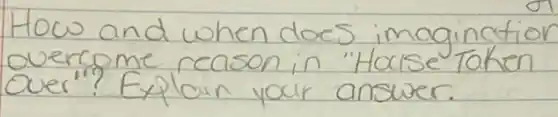 How and when does imagination
overcome reason in "House Taken
Over"? Explain your answer.